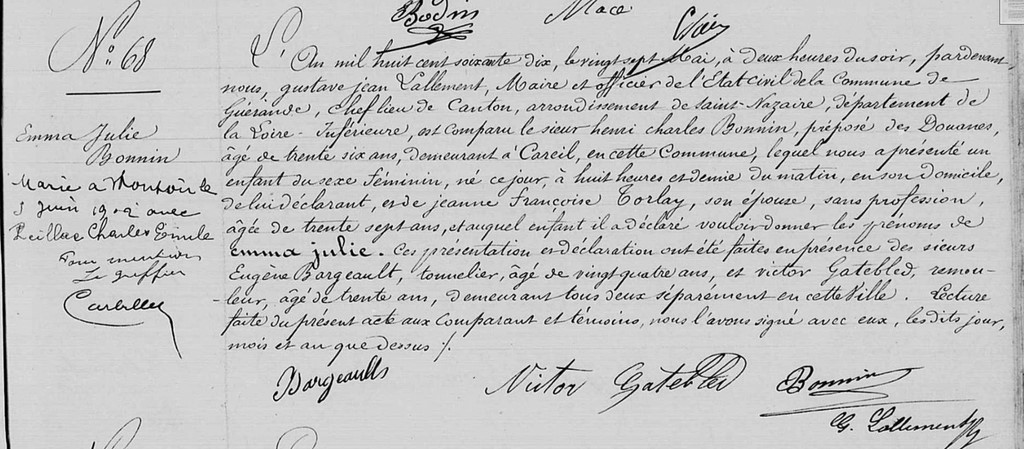 Bodin Macé
N° 68
L'An mil huit cent soixante dix, le vingt sept Mai, à deux heures du soir, pardevant
nous, gustave jean Lallement, Maire et officier de l'Etat civil de la Commune de
Guérande, Chef lieu de Canton, arrondissement de saint-Nazaire, département de
la Loire-Inférieure, est comparu le sieur henri charles Bonnin, préposé des Douanes,
âgé de trente six ans, demeurant à Careil, en cette Commune, lequel nous a présenté un
enfant du sexe Féminin, né ce jour, à huit heures et demie du matin, en son domicile,
de lui déclarant, et de jeanne Françoise Torlay, son épouse, sans profession,
âgée de trente sept ans, et auquel enfant il a déclaré vouloir donner les prénoms de
emma julie. Ces présentation et déclaration ont été faites en présence des sieurs
Eugène Bargeault, tonnelier, âgé de vingt quatre ans, et victor Gatebled, remou-
-leur, âgé de trente ans, demeurant tous deux séparément en cette Ville. Lecture
faite du présent acte aux Comparant et témoins, nous l'avons signé avec eux, les dits jour,
mois et an que dessus /.
Emma Julie
Bonnin
Marié a Montoir le
Juin avec
Charles Emile
Pour mention
Le greffier
Bargeault Victor Gatebled Bonnin
G. Lallement